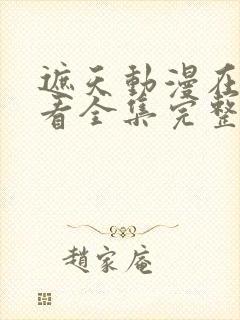 遮天動漫在
看全集完整
趙家庵